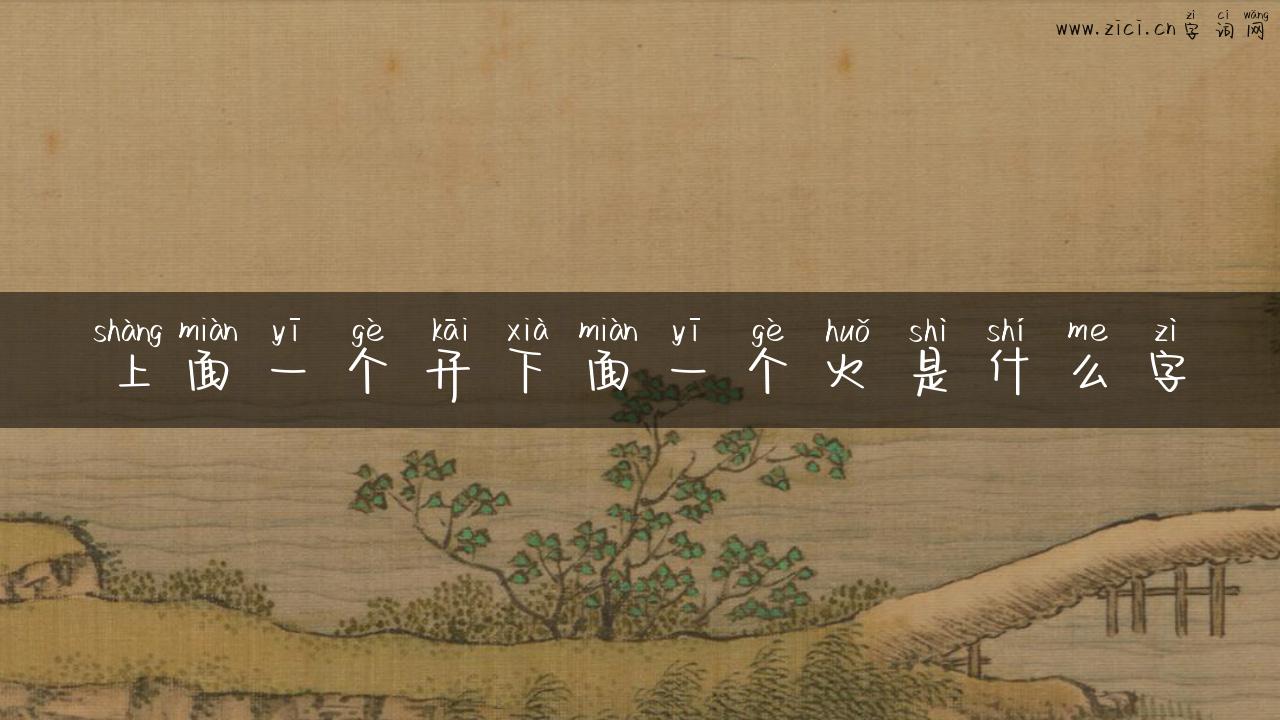 zì cí wǎng
www.zici.cn 字词网
shàng miàn yī gè kāi xià miàn yī gè huǒ shì shí me zì
上面一个开下面一个火是什么字